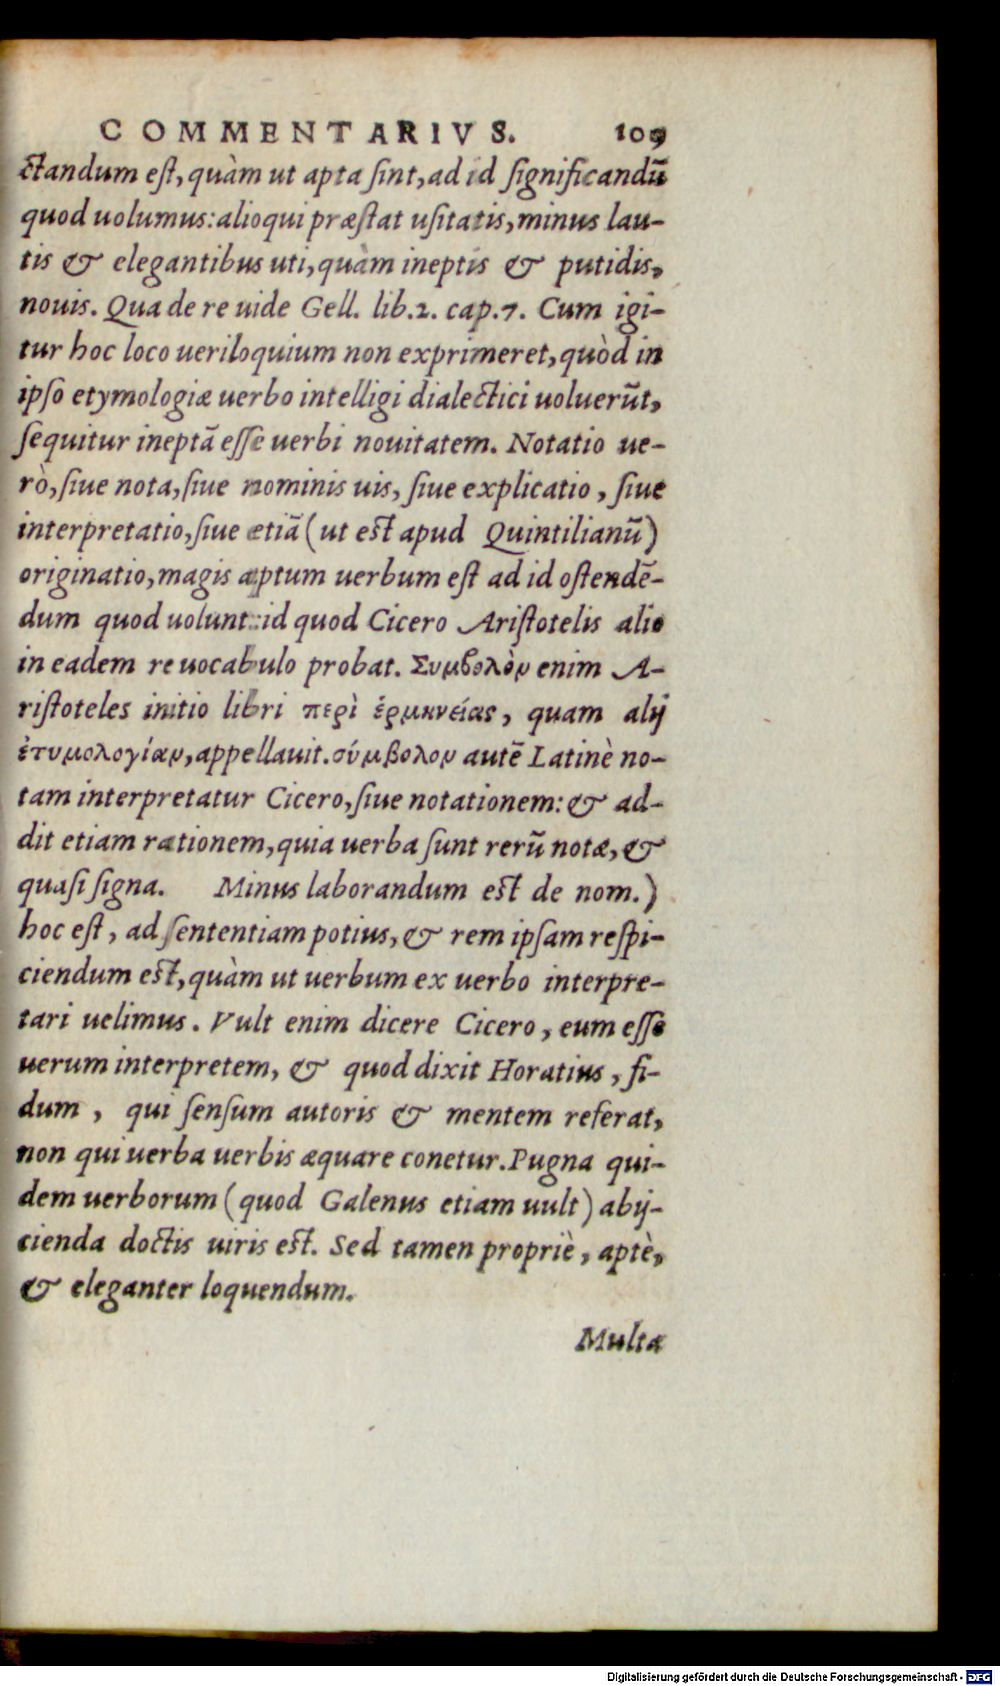 COMMENTARIVS. 109
ctandum est, quàm ut apta sint, ad id significandū
quod uolumus: alioqui præstat usitatis, minus lau-
tis & elegantibus uti, quàm ineptis & putidis,
nouis. Qua de re uide Gell. lib.2. cap.7. Cum igi-
tur hoc loco ueriloquium non exprimeret, quòd in
ipso etymologiæ uerbo intelligi dialectici uoluerūt,
sequitur ineptā esse uerbi nouitatem. Notatio ue-
rò, siue nota, siue nominis uis, siue explicatio, siue
interpretatio, siue etiā (ut est apud Quintilianū)
originatio, magis aptum uerbum est ad id ostendē-
dum quod uolunt: id quod Cicero Aristotelis alio
in eadem re uocabulo probat. Συμβολὸν enim A-
ristoteles initio libri περὶ ἑρμηνείας, quam alij
ἐτυμολογίαν, appellauit. σύμβολον autē Latinè no-
tam interpretatur Cicero, siue notationem: & ad-
dit etiam rationem, quia uerba sunt rerū notæ, &
quasi signa. Minus laborandum est de nom.)
hoc est, ad sententiam potius, & rem ipsam respi-
ciendum est, quàm ut uerbum ex uerbo interpre-
tari uelimus. Vult enim dicere Cicero, eum esse
uerum interpretem, & quod dixit Horatius, fi-
dum, qui sensum autoris & mentem referat,
non qui uerba uerbis æquare conetur. Pugna qui-
dem uerborum (quod Galenus etiam uult) abij-
cienda doctis uiris est. Sed tamen propriè, aptè,
& eleganter loquendum.
Multæ
Digitalisierung gefördert durch die Deutsche Forschungsgemeinschaft - DFG